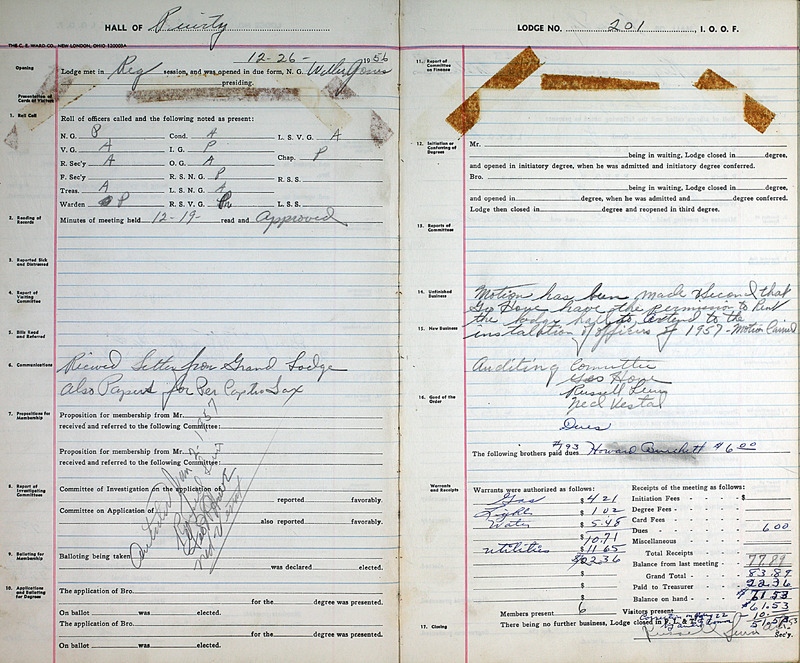 HALL OF
THE C. E. WARD CO., NEW LONDON, OHIO
12-26- 1956
Opening
Lodge met in Reg session, and was opened in due form, N. G.
presiding.
Presentation of Cards of Visitors
1. Roll Call
Roll of officers called and the following noted as present:
N. G. P Cond. A L. S. V. G. A
V. G. A I. G. P
R. Sec'y A O. G. A Chap. P
F. Sec'y R. S. N. G. P R. S. S.
Treas. A L. S. N. G. A
Warden P R. S. V. G. L. S. S.
2. Reading of Records
Minutes of meeting held 12-19- read and Approved
3. Reported Sick and Distressed
4. Report of Visiting Committee
5. Bills Read and Referred
6. Communications
Recived Letter from Grand Lodge
Also Papers for Per Capto Tax
7. Propositions for Membership
Proposition for membership from Mr.
received and referred to the following Committee:
Proposition for membership from Mr.
received and referred to the following Committee:
8. Report of Investigating Committees
Committee of Investigation on the application of
reported favorably.
Committee on Application of
also reported favorably.
Jan 2, 1957
9. Balloting for Membership
Balloting being taken
was declared elected.
10. Applications and Balloting for Degrees
The application of Bro.
for the degree was presented.
On ballot was elected.
The application of Bro.
for the degree was presented.
On ballot was elected.
LODGE NO. 201, I. O. O. F.
11. Report of Committee on Finance
12. Initiation or Conferring of Degrees
Mr.
being in waiting, Lodge closed in degree,
and opened in initiatory degree, when he was admitted and initiatory degree conferred.
Bro.
being in waiting, Lodge closed in degree,
and opened in degree, when he was admitted and degree conferred.
Lodge then closed in degree and reopened in third degree.
13. Reports of Committees
14. Unfinished Business
Motion has been made & Second that
Geo Hone have the permission to Rent
the lodge hall to attend to the
15. New Business
instalation of officers of 1957 - Motion Carried
Auditing Committee
Geo Hone
Russell
Ned Vestal
16. Good of the Order
Dues
The following brothers paid dues #793 Howard Burchett $6.00
Warrants and Receipts
Warrants were authorized as follows:
Gas $ 4.21
Lights $ 1.02
Water $ 5.48
10.71
utilities $ 11.65
$22.36
$
$
$
Receipts of the meeting as follows:
Initiation Fees $
Degree Fees
Card Fees
Dues 6.00
Miscellaneous
Total Receipts
Balance from last meeting 77.89
Grand Total 83.89
Paid to Treasurer 22.36
Balance on hand $61.53
$61.53
Members present 6 Visitors present
17. Closing
There being no further business, Lodge closed in F. L. & T.
51.53
Sec'y.